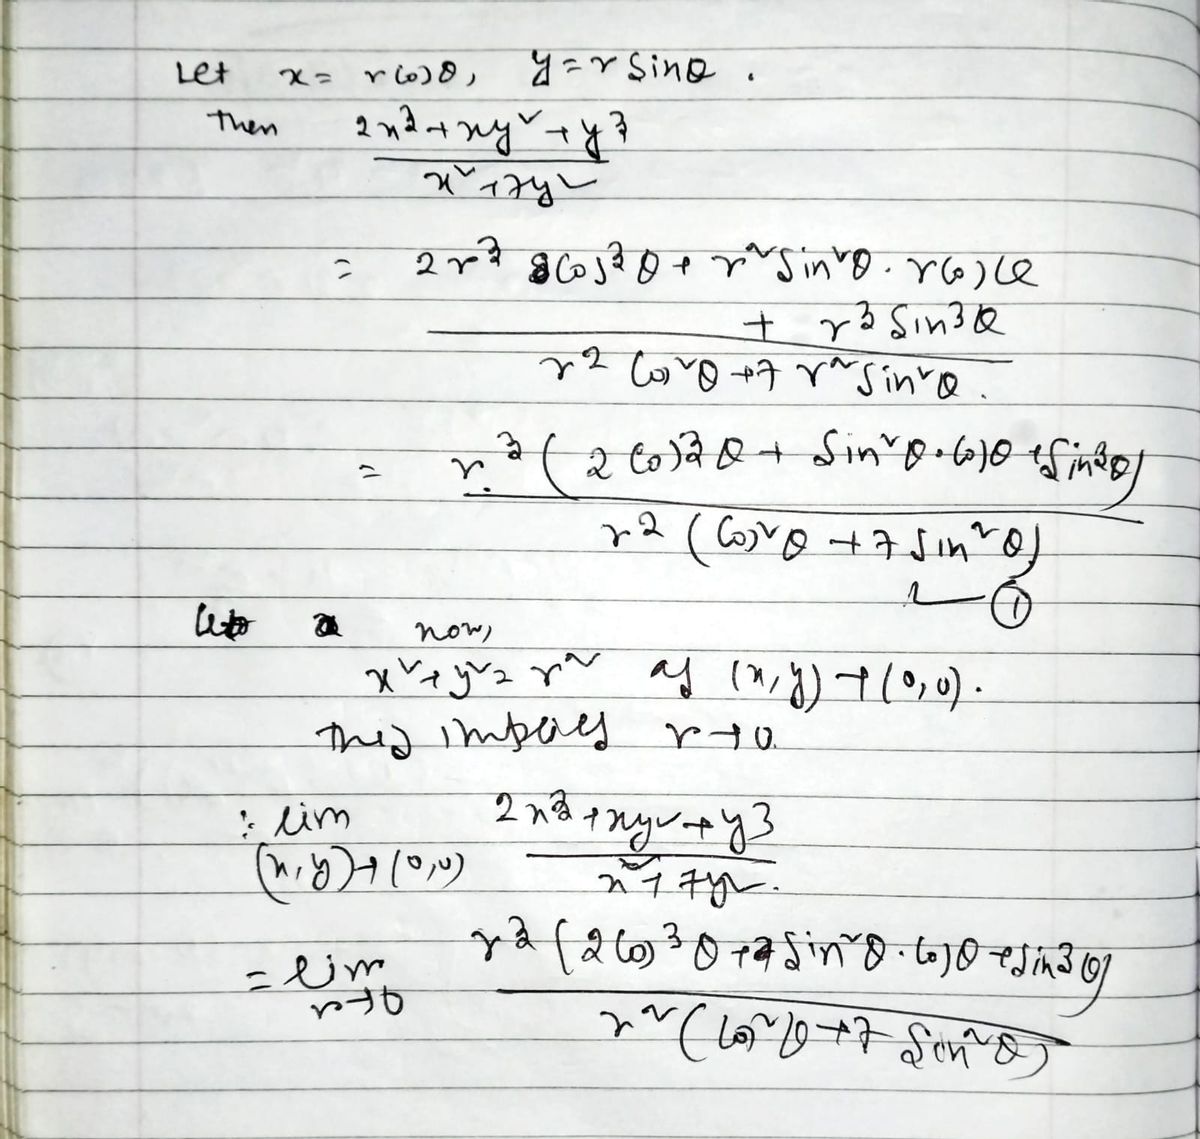 Let x = r cosθ, y = r sinθ.
Then 2x³+xy²+y³
x²+7y²
= 2r³ cos³θ + r² sin²θ. r cosθ
+ r³ sin³θ
r² cos²θ + 7 r² sin²θ.
= r³ ( 2 cos³θ + sin²θ. cosθ + sin³θ)
r² ( cos²θ + 7 sin²θ)
①
now,
x²+y² = r² as (x,y) → (0,0).
This implies r → 0.
∴ lim 2x³+xy²+y³
(x,y)→(0,0) x²+7y².
= lim r³ (2cos³θ + sin²θ. cosθ + sin³θ)
r→0 r² (cos²θ + 7 sin²θ)